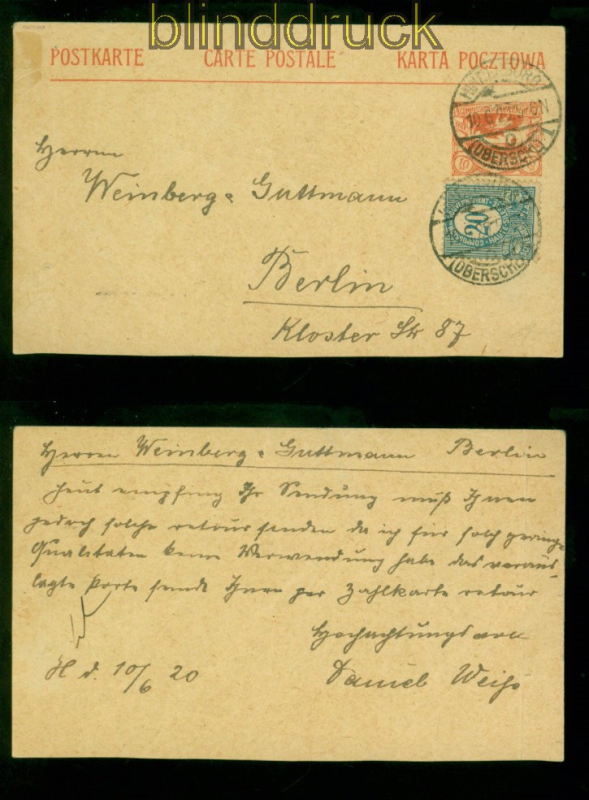 blinddruck
POSTKARTE CARTE POSTALE KARTA POCZTOWA
Herren
Weinberg & Guttmann
Berlin
Kloster Str 87
(OBERSCHL)
10
20
(OBERSCHL)
Herren Weinberg & Guttmann Berlin
Heut empfing Ihr Sendung muß Ihnen
jedoch solche retour senden da ich für solch geringe
Qualitäten keine Verwendung habe das veraus
lagte Porto sende Ihnen per Zahlkarte retour
Hochachtungsvoll
H d. 10/6 20 Daniel Weiß